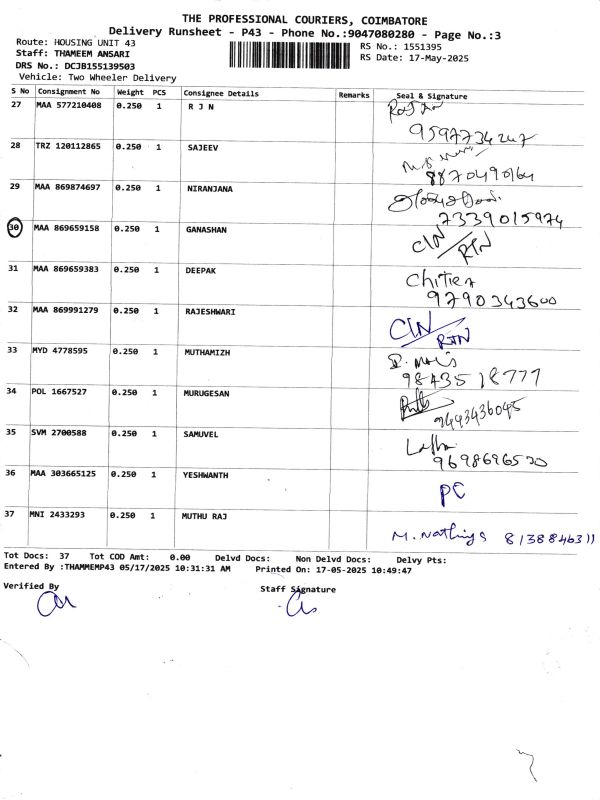 THE PROFESSIONAL COURIERS, COIMBATORE
Delivery Runsheet - P43 - Phone No.:9047080280 - Page No.:3
Route: HOUSING UNIT 43
Staff: THAMEEM ANSARI
DRS No.: DCJB155139503
Vehicle: Two Wheeler Delivery
RS No.: 1551395
RS Date: 17-May-2025
S No Consignment No Weight PCS Consignee Details Remarks Seal & Signature
27 MAA 577210408 0.250 1 R J N
9597734247
28 TRZ 120112865 0.250 1 SAJEEV
8870490164
29 MAA 869874697 0.250 1 NIRANJANA
7339015974
30 MAA 869659158 0.250 1 GANASHAN CIN/RTN
31 MAA 869659383 0.250 1 DEEPAK Chitra
9790343600
32 MAA 869991279 0.250 1 RAJESHWARI CIN/RTN
33 MYD 4778595 0.250 1 MUTHAMIZH
9843518777
34 POL 1667527 0.250 1 MURUGESAN
9443436045
35 SVM 2700588 0.250 1 SAMUVEL Latha
9698696520
36 MAA 303665125 0.250 1 YESHWANTH PC
37 MNI 2433293 0.250 1 MUTHU RAJ
M. 8138846311
Tot Docs: 37 Tot COD Amt: 0.00 Delvd Docs: Non Delvd Docs: Delvy Pts:
Entered By :THAMMEMP43 05/17/2025 10:31:31 AM Printed On: 17-05-2025 10:49:47
Verified By Staff Signature